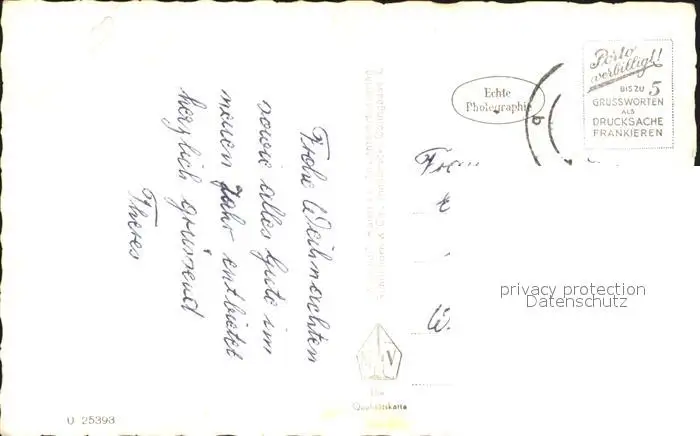 Frohe Weihnachten
sowie alles Gute im
neuen Jahr entbietet
herzlich grüssend
Theres
Echte
Photographie
Porto
verbilligt!
BIS ZU 5
GRUSSWORTEN
ALS
DRUCKSACHE
FRANKIEREN
privacy protection
Datenschutz
Qualitätskarte
U 25393